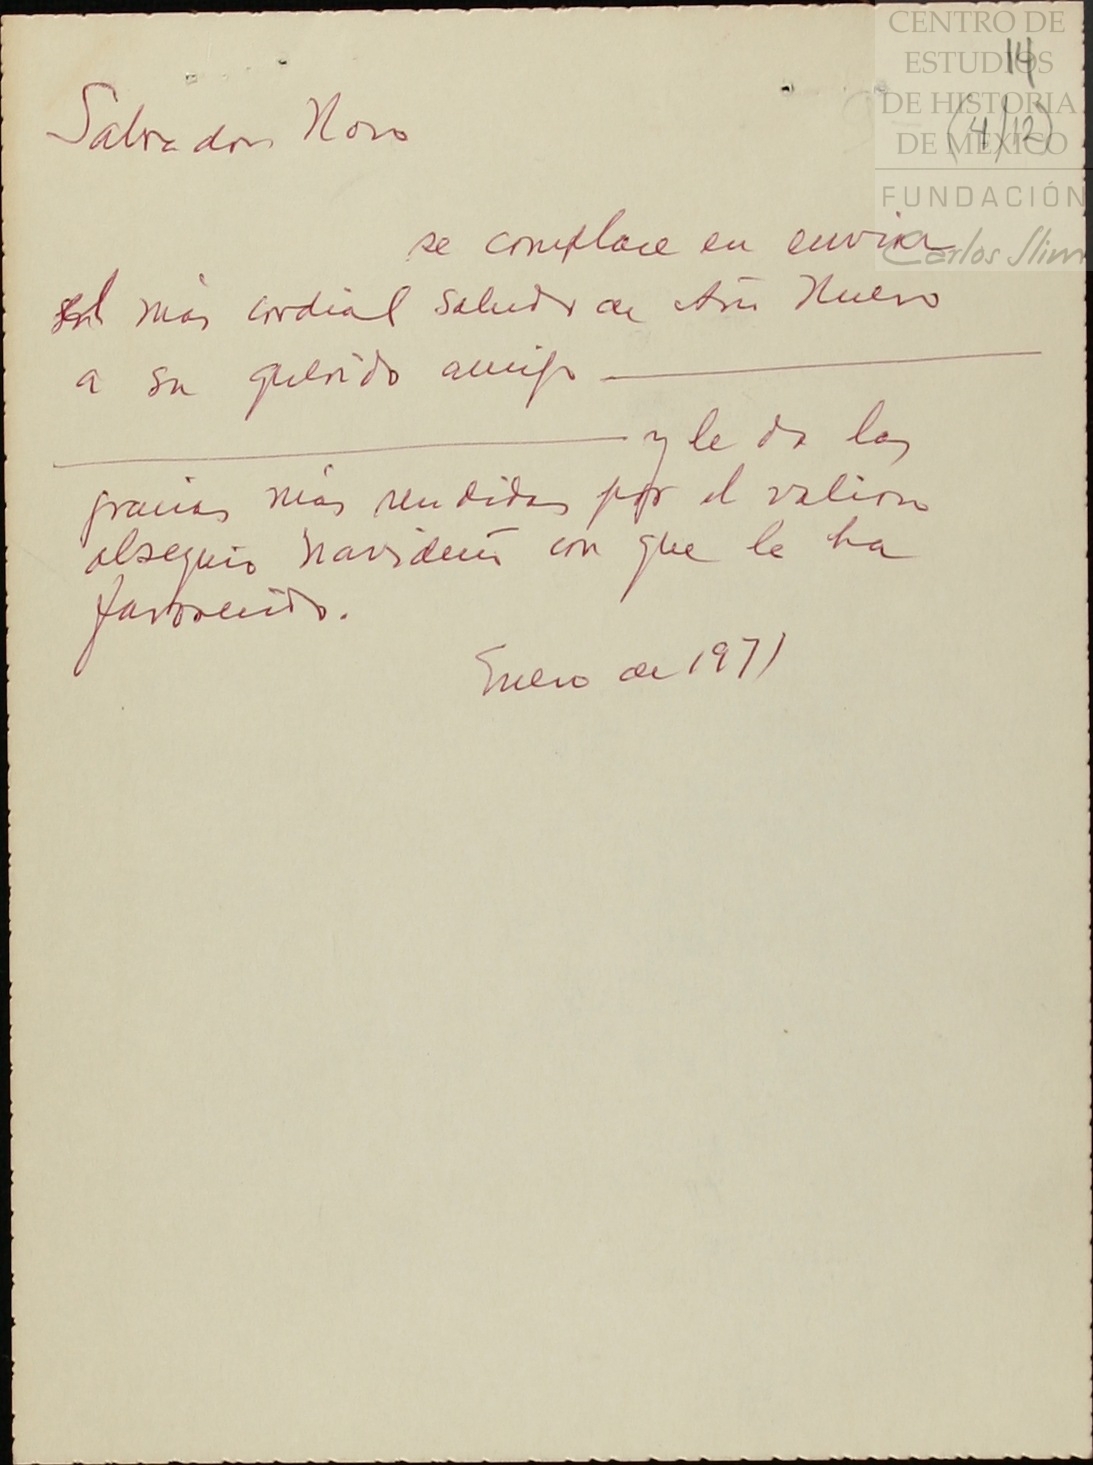 CENTRO DE
ESTUDIOS
DE HISTORIA
DE MÉXICO
FUNDACIÓN
Carlos Slim
14
(4/12)
Salvador Novo
se complace en enviar
el más cordial saludo de Año Nuevo
a su querido amigo
y le da las
gracias más rendidas por el valioso
obsequio navideño con que le ha
favorecido.
Enero de 1971